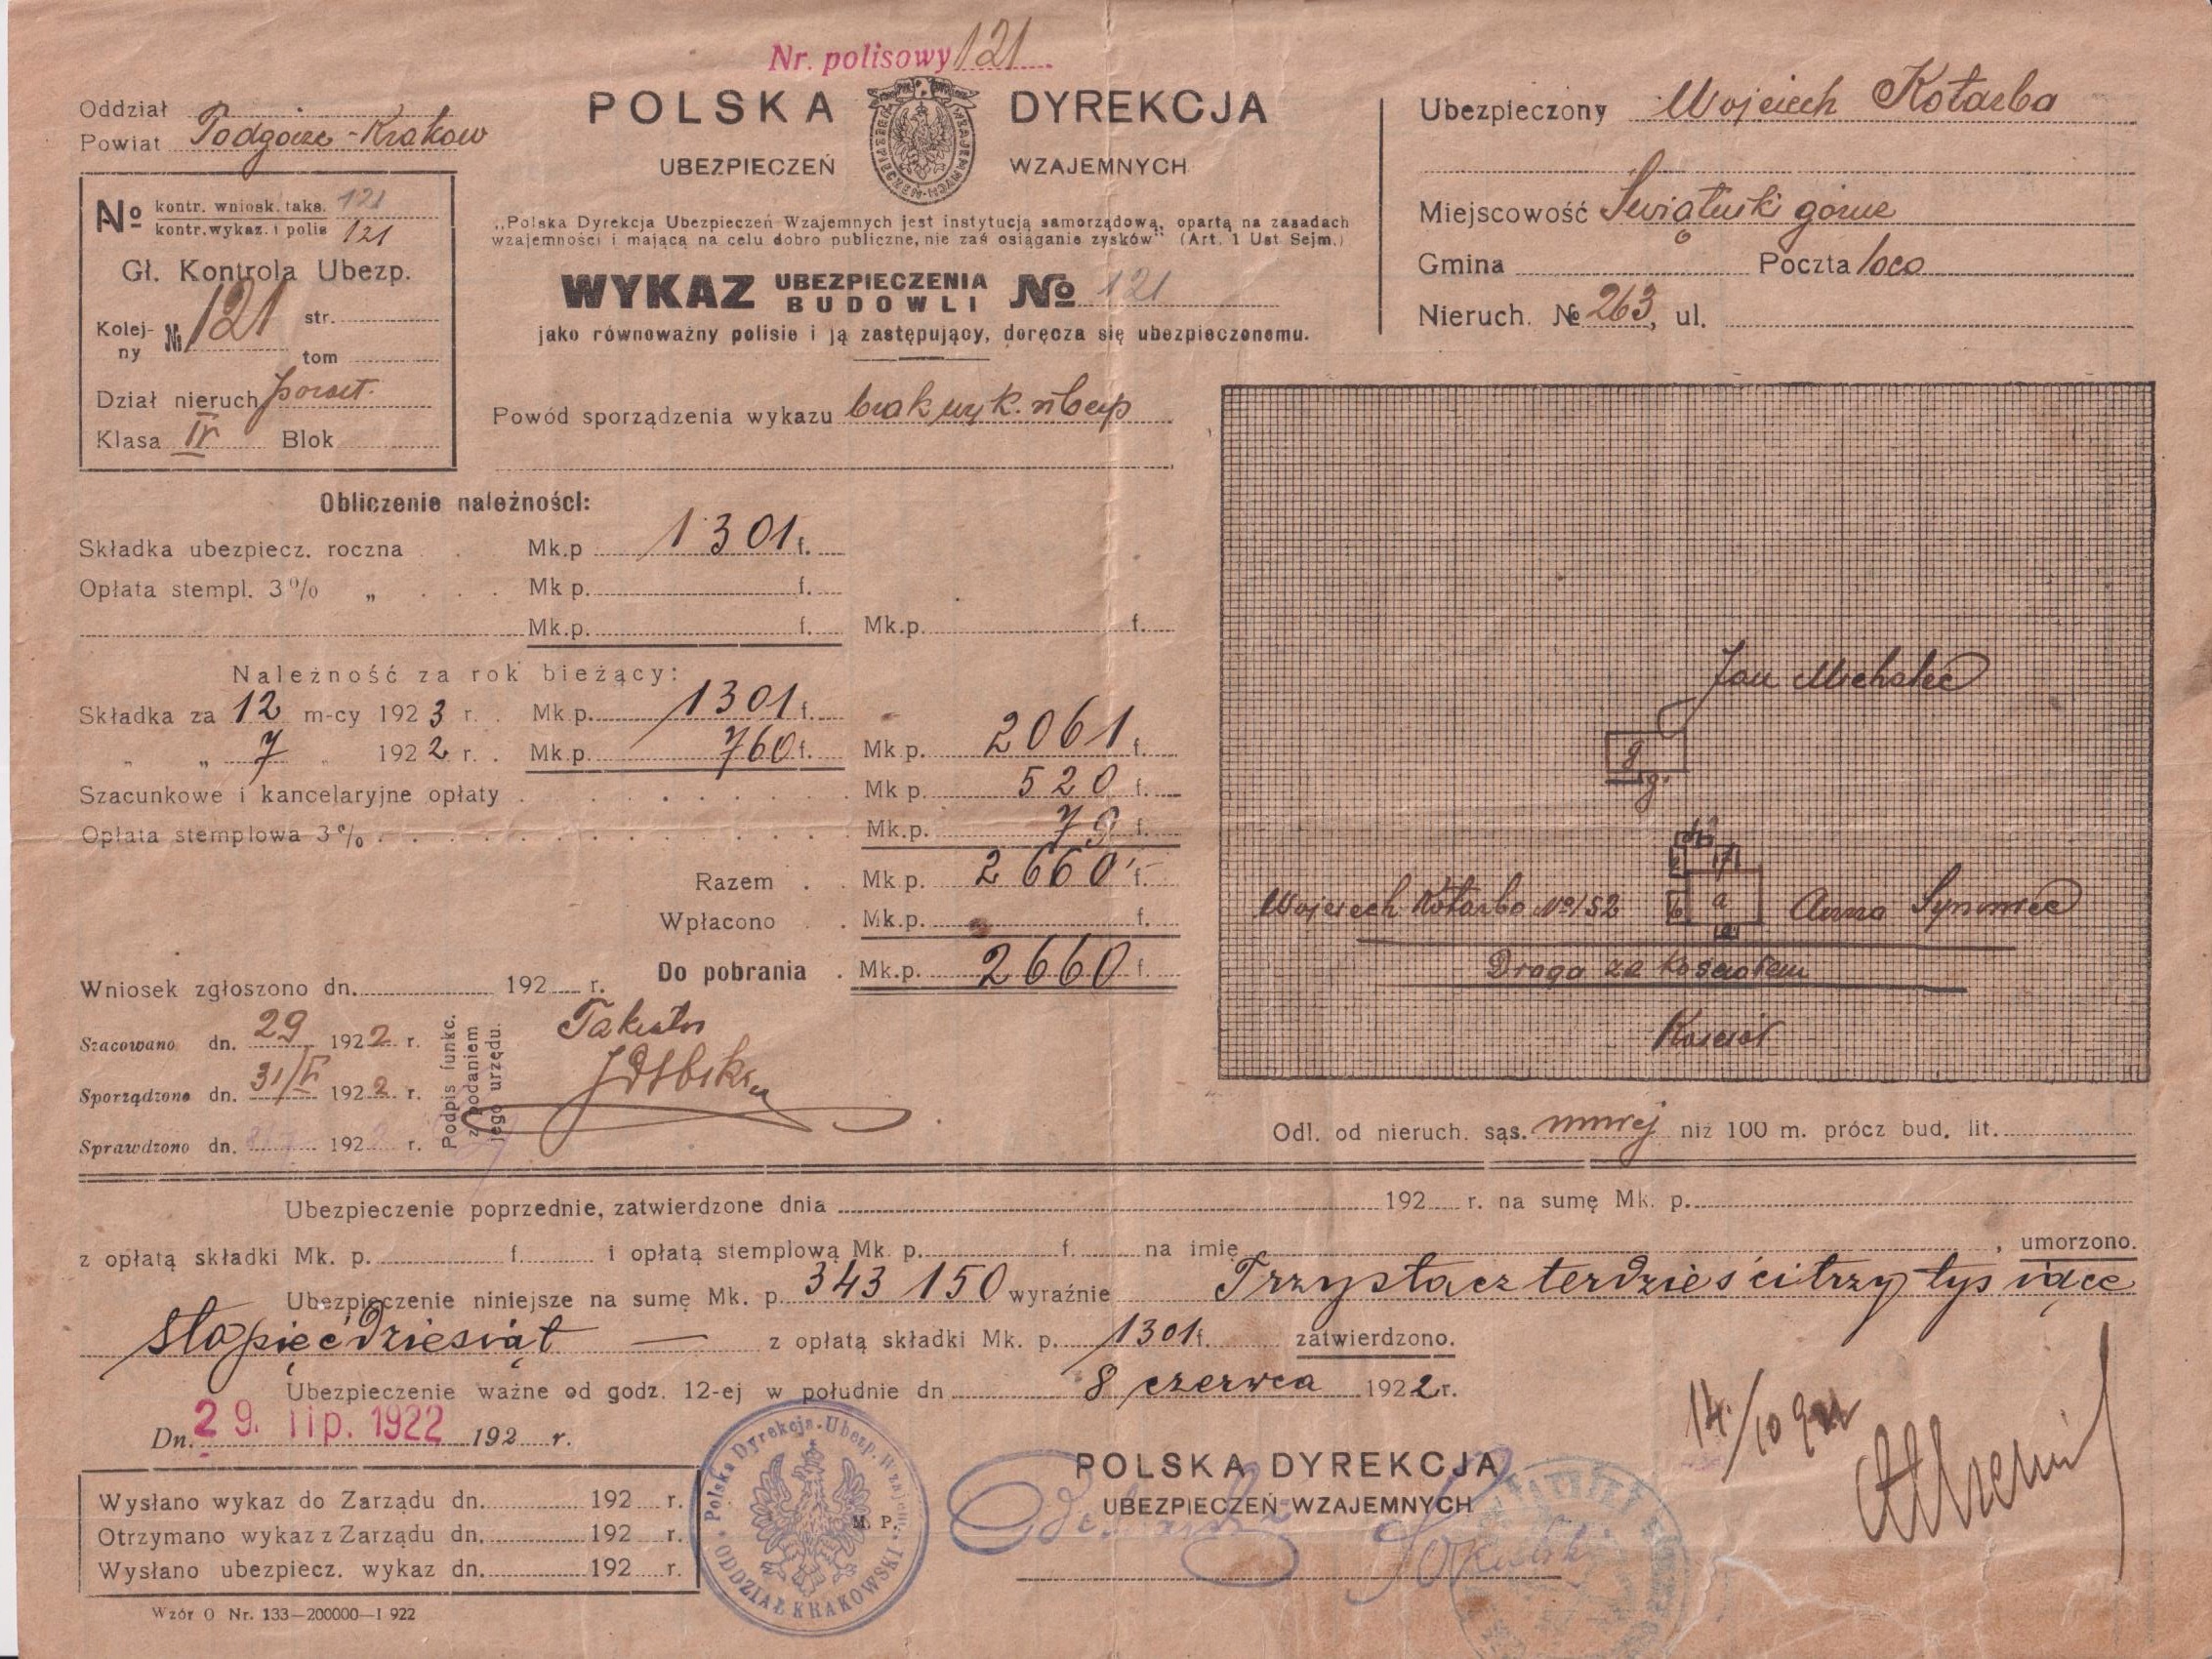 Nr. polisowy 121
Oddział
Powiat Podgórze-Kraków
POLSKA DYREKCJA
UBEZPIECZEŃ WZAJEMNYCH
„Polska Dyrekcja Ubezpieczeń Wzajemnych jest instytucją samorządową, opartą na zasadach
wzajemności i mającą na celu dobro publiczne, nie zaś osiąganie zysków" (Art. 1 Ust Sejm.)
WYKAZ UBEZPIECZENIA BUDOWLI No 121
jako równoważny polisie i ją zastępujący, doręcza się ubezpieczonemu.
Powód sporządzenia wykazu brak wyk.
Ubezpieczony Wojciech Kotarba
Miejscowość Świątniki górne
Gmina Poczta loco
Nieruch. № 263, ul.
No kontr. wniosk. taks. 121
kontr. wykaz. i polis 121
Gł. Kontrola Ubezp.
Kolejny № 121 str.
tom
Dział nieruch
Klasa IV Blok
Obliczenie należności:
Składka ubezpiecz. roczna Mk.p 1301 f.
Opłata stempl. 3% „ Mk p. f.
Mk.p. f. Mk.p. f.
Należność za rok bieżący:
Składka za 12 m-cy 1923 r. Mk p. 1301 f.
„ „ 7 „ 1922 r. Mk p. 760 f. Mk p. 2061 f.
Szacunkowe i kancelaryjne opłaty Mk p. 520 f.
Opłata stemplowa 3% Mk.p. 79 f.
Razem Mk.p. 2660 f.
Wpłacono Mk.p. f.
Do pobrania Mk.p. 2660 f.
Wniosek zgłoszono dn. 192 r.
Szacowano dn. 29 1922 r.
Sporządzono dn. 31/V 1922 r.
Sprawdzono dn. 192 r.
Podpis funkc.
z podaniem
jego urzędu.
Jan Michalec
g
g.
Wojciech Kotarba No 152 b a Anna Synowiec
Droga za kościołem
Kościół
Odl. od nieruch. sąs. mniej niż 100 m. prócz bud. lit.
Ubezpieczenie poprzednie, zatwierdzone dnia 192 r. na sumę Mk. p.
z opłatą składki Mk. p. f. i opłatą stemplową Mk p. f. na imię , umorzono.
Ubezpieczenie niniejsze na sumę Mk. p. 343 150 wyraźnie Trzystaczterdzieścitrzy tysiące
stopięćdziesiąt — z opłatą składki Mk. p. 1301 f. zatwierdzono.
Ubezpieczenie ważne od godz. 12-ej w południe dn 8 czerwca 1922 r.
Dn. 29. lip. 1922 192 r.
14/10 922
POLSKA DYREKCJA
UBEZPIECZEŃ WZAJEMNYCH
Wysłano wykaz do Zarządu dn. 192 r.
Otrzymano wykaz z Zarządu dn. 192 r.
Wysłano ubezpiecz. wykaz dn. 192 r.
M. P.
Polska Dyrekcja Ubezp. Wzajem.
ODDZIAŁ KRAKOWSKI
Wzór O Nr. 133—200000—I 922